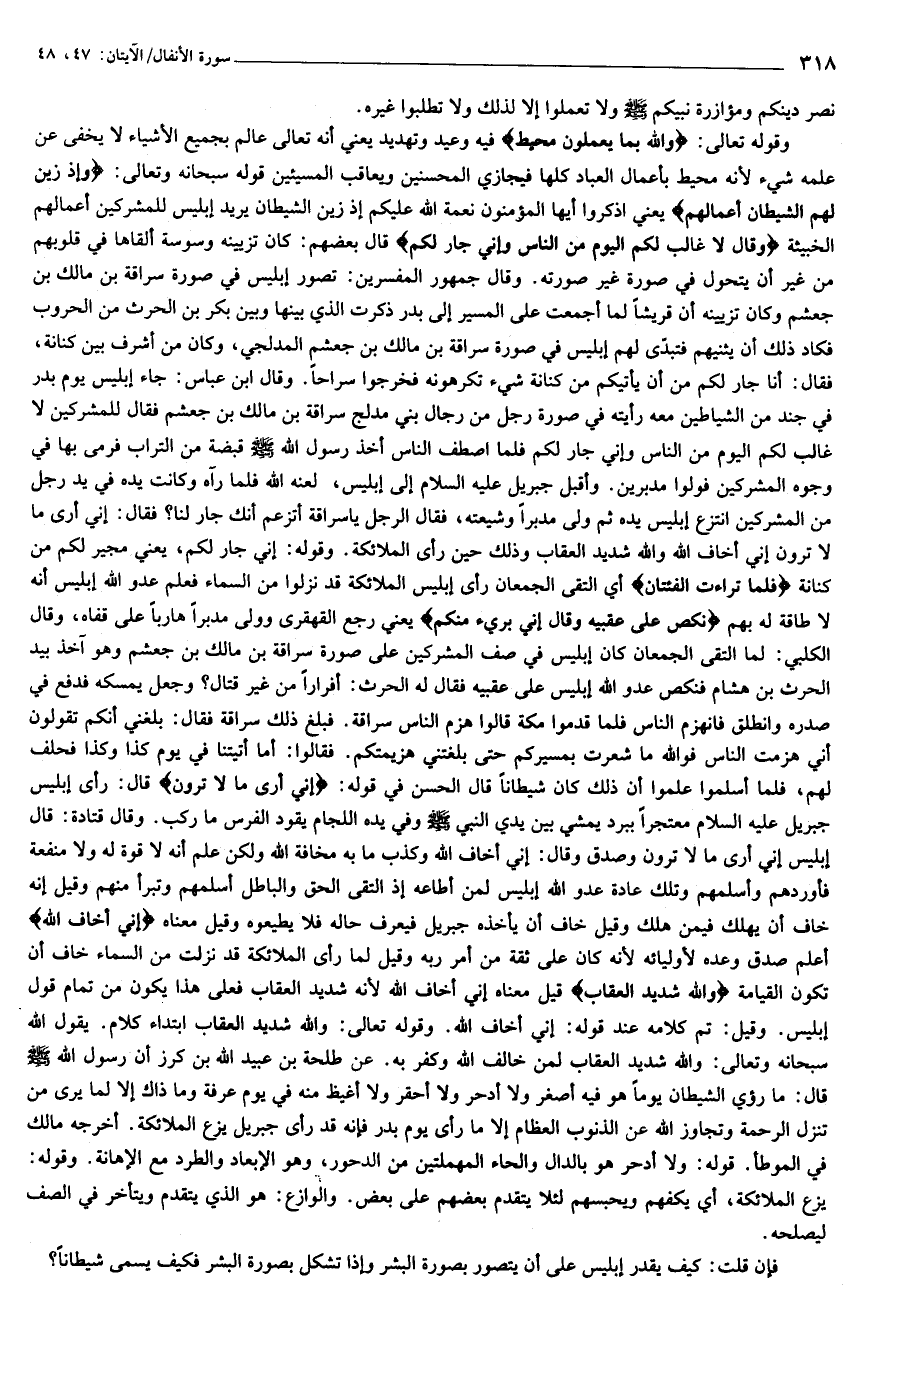 ٣١٨ سورة الأنفال/ الآيتان: ٤٧، ٤٨
نصر دينكم ومؤازرة نبيكم ﷺ ولا تعملوا إلا لذلك ولا تطلبوا غيره.
وقوله تعالى: ﴿والله بما يعملون محيط﴾ فيه وعيد وتهديد يعني أنه تعالى عالم بجميع الأشياء لا يخفى عن
علمه شيء لأنه محيط بأعمال العباد كلها فيجازي المحسنين ويعاقب المسيئين قوله سبحانه وتعالى: ﴿وإذ زين
لهم الشيطان أعمالهم﴾ يعني اذكروا أيها المؤمنون نعمة الله عليكم إذ زين الشيطان يريد إبليس للمشركين أعمالهم
الخبيثة ﴿وقال لا غالب لكم اليوم من الناس وإني جار لكم﴾ قال بعضهم: كان تزيينه وسوسة ألقاها في قلوبهم
من غير أن يتحول في صورة غير صورته. وقال جمهور المفسرين: تصور إبليس في صورة سراقة بن مالك بن
جعشم وكان تزيينه أن قريشاً لما أجمعت على المسير إلى بدر ذكرت الذي بينها وبين بكر بن الحرث من الحروب
فكاد ذلك أن يثنيهم فتبدّى لهم إبليس في صورة سراقة بن مالك بن جعشم المدلجي، وكان من أشرف بين كنانة،
فقال: أنا جار لكم من أن يأتيكم من كنانة شيء تكرهونه فخرجوا سراحاً. وقال ابن عباس: جاء إبليس يوم بدر
في جند من الشياطين معه رأيته في صورة رجل من رجال بني مدلج سراقة بن مالك بن جعشم فقال للمشركين لا
غالب لكم اليوم من الناس وإني جار لكم فلما اصطف الناس أخذ رسول الله ﷺ قبضة من التراب فرمى بها في
وجوه المشركين فولوا مدبرين. وأقبل جبريل عليه السلام إلى إبليس، لعنه الله فلما رآه وكانت يده في يد رجل
من المشركين انتزع إبليس يده ثم ولى مدبراً وشيعته، فقال الرجل ياسراقة أتزعم أنك جار لنا؟ فقال: إني أرى ما
لا ترون إني أخاف الله والله شديد العقاب وذلك حين رأى الملائكة. وقوله: إني جار لكم، يعني مجير لكم من
كنانة ﴿فلما تراءت الفئتان﴾ أي التقى الجمعان رأى إبليس الملائكة قد نزلوا من السماء فعلم عدو الله إبليس أنه
لا طاقة له بهم ﴿نكص على عقبيه وقال إني بريء منكم﴾ يعني رجع القهقرى وولى مدبراً هارباً على قفاه، وقال
الكلبي: لما التقى الجمعان كان إبليس في صف المشركين على صورة سراقة بن مالك بن جعشم وهو آخذ بيد
الحرث بن هشام فنكص عدو الله إبليس على عقبيه فقال له الحرث: أفراراً من غير قتال؟ وجعل يمسكه فدفع في
صدره وانطلق فانهزم الناس فلما قدموا مكة قالوا هزم الناس سراقة. فبلغ ذلك سراقة فقال: بلغني أنكم تقولون
أني هزمت الناس فوالله ما شعرت بمسيركم حتى بلغتني هزيمتكم. فقالوا: أما أتيتنا في يوم كذا وكذا فحلف
لهم، فلما أسلموا علموا أن ذلك كان شيطاناً قال الحسن في قوله: ﴿إني أرى ما لا ترون﴾ قال: رأى إبليس
جبريل عليه السلام معتجراً ببرد يمشي بين يدي النبي ﷺ وفي يده اللجام يقود الفرس ما ركب. وقال قتادة: قال
إبليس إني أرى ما لا ترون وصدق وقال: إني أخاف الله وكذب ما به مخافة الله ولكن علم أنه لا قوة له ولا منفعة
فأوردهم وأسلمهم وتلك عادة عدو الله إبليس لمن أطاعه إذ التقى الحق والباطل أسلمهم وتبرأ منهم وقيل إنه
خاف أن يهلك فيمن هلك وقيل خاف أن يأخذه جبريل فيعرف حاله فلا يطيعوه وقيل معناه ﴿إني أخاف الله﴾
أعلم صدق وعده لأوليائه لأنه كان على ثقة من أمر ربه وقيل لما رأى الملائكة قد نزلت من السماء خاف أن
تكون القيامة ﴿والله شديد العقاب﴾ قيل معناه إني أخاف الله لأنه شديد العقاب فعلى هذا يكون من تمام قول
إبليس. وقيل: تم كلامه عند قوله: إني أخاف الله. وقوله تعالى: والله شديد العقاب ابتداء كلام. يقول الله
سبحانه وتعالى: والله شديد العقاب لمن خالف الله وكفر به. عن طلحة بن عبيد الله بن كرز أن رسول الله ﷺ
قال: ما رؤي الشيطان يوماً هو فيه أصغر ولا أدحر ولا أحقر ولا أغيظ منه في يوم عرفة وما ذاك إلا لما يرى من
تنزل الرحمة وتجاوز الله عن الذنوب العظام إلا ما رأى يوم بدر فإنه قد رأى جبريل يزع الملائكة. أخرجه مالك
في الموطأ. قوله: ولا أدحر هو بالدال والحاء المهملتين من الدحور، وهو الإبعاد والطرد مع الإهانة. وقوله:
يزع الملائكة، أي يكفهم ويحبسهم لئلا يتقدم بعضهم على بعض. والوازع: هو الذي يتقدم ويتأخر في الصف
ليصلحه.
فإن قلت: كيف يقدر إبليس على أن يتصور بصورة البشر وإذا تشكل بصورة البشر فكيف يسمى شيطاناً؟